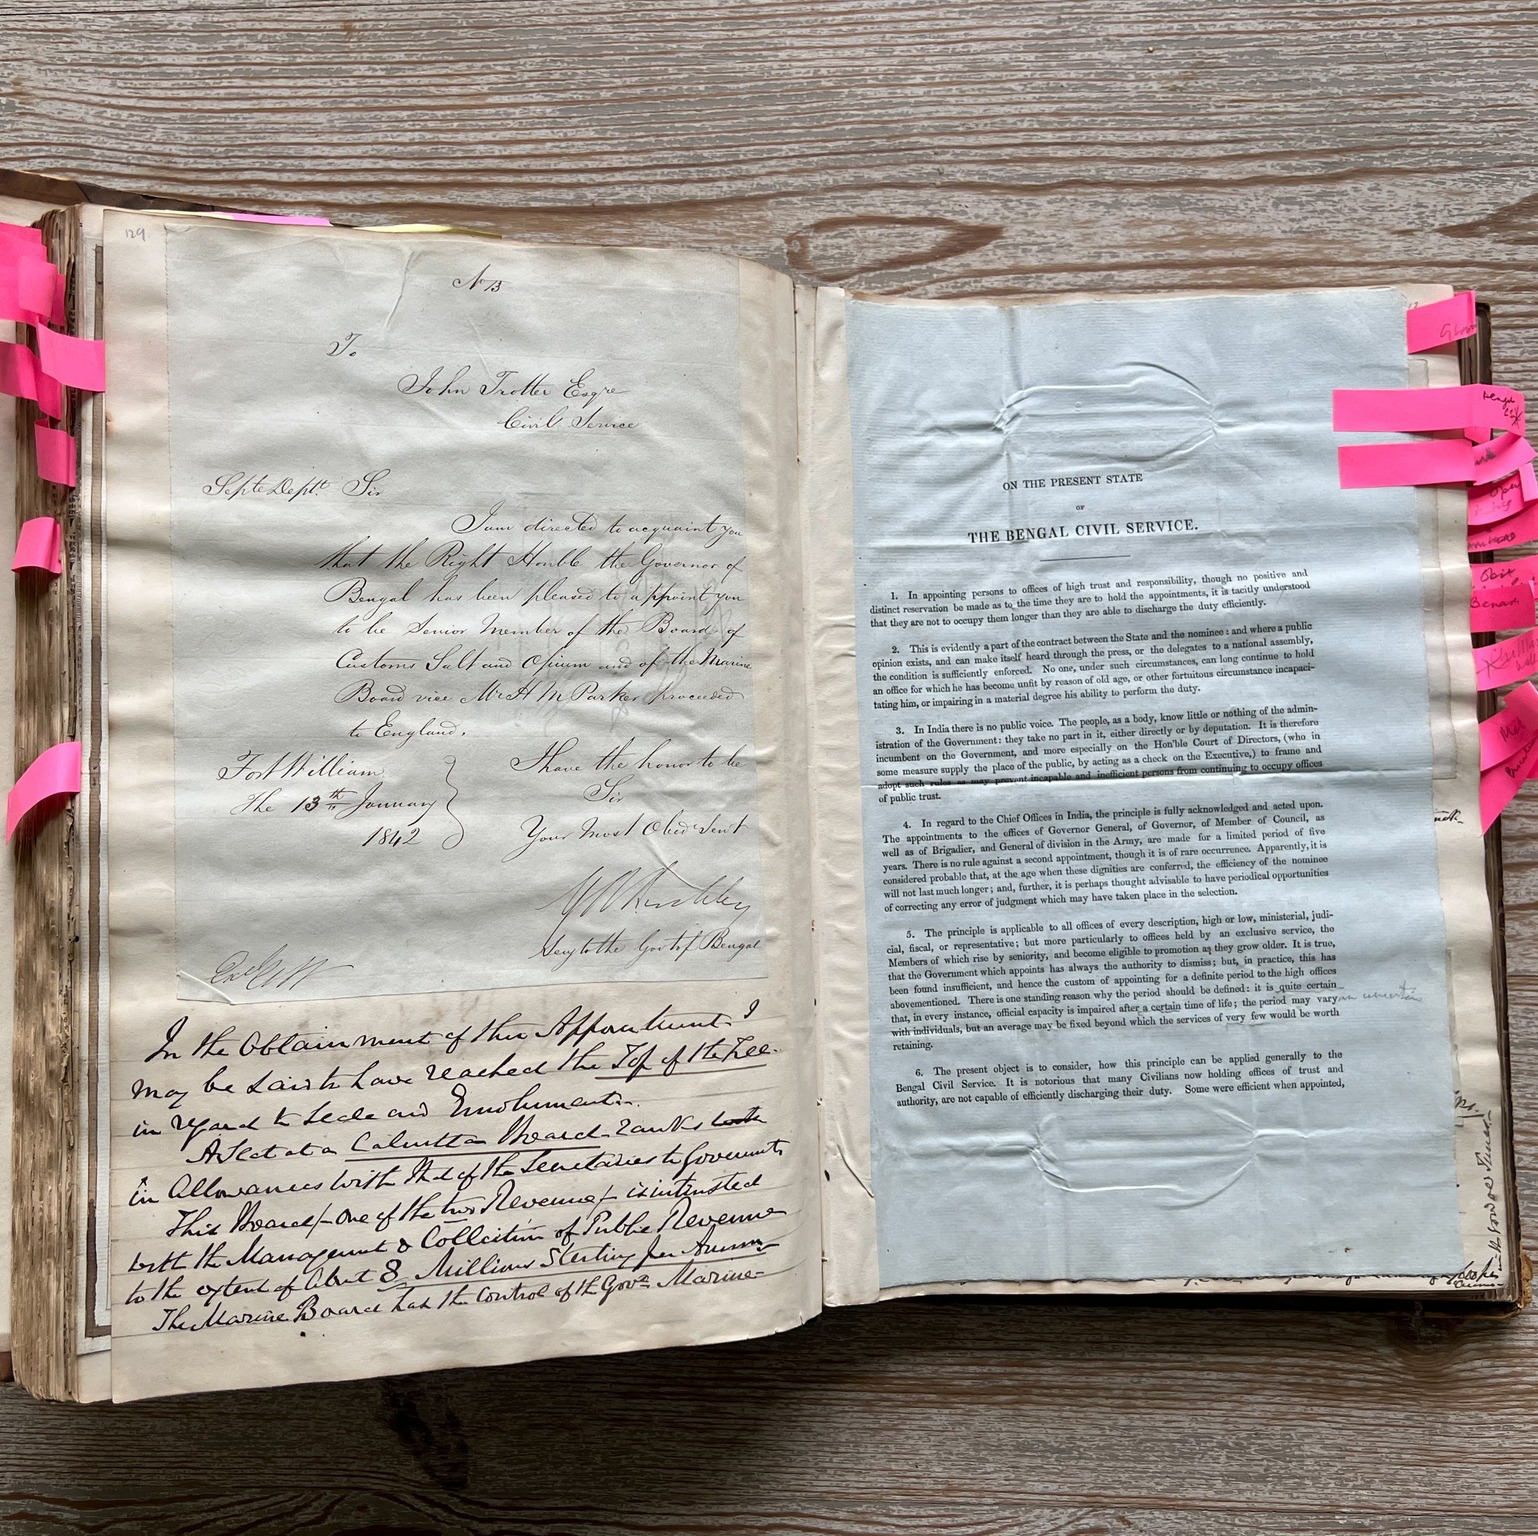 129.
No 13
To
John Trotter Esqre
Civil Service
Septe Deptt. Sir
I am directed to acquaint you
that the Right Honble the Governor of
Bengal has been pleased to appoint you
to be Senior Member of the Board of
Customs Salt and Opium and of the Marine
Board vice Mr H M Parker proceeded
to England.
I have the honor to be
Fort William
Sir
The 13th January
Your Most Obed Sert
1842
Secy to the Govt of Bengal
In the Obtainment of this Appointment I
may be said to have reached the Top of the Tree
in regard to Scale and Emoluments.
A Seat at a Calcutta Board ranks
in Allowances with that of the Secretaries to Government
This Board /- one of the two Revenue /- is intrusted
with the Management & Collection of Public Revenue
to the extent of about 8 Millions Sterling per Annum
The Marine Board has the Control of the Govt Marine
ON THE PRESENT STATE
OF
THE BENGAL CIVIL SERVICE.
1. In appointing persons to offices of high trust and responsibility, though no positive and
distinct reservation be made as to the time they are to hold the appointments, it is tacitly understood
that they are not to occupy them longer than they are able to discharge the duty efficiently.
2. This is evidently a part of the contract between the State and the nominee: and where a public
opinion exists, and can make itself heard through the press, or the delegates to a national assembly,
the condition is sufficiently enforced. No one, under such circumstances, can long continue to hold
an office for which he has become unfit by reason of old age, or other fortuitous circumstance incapaci-
tating him, or impairing in a material degree his ability to perform the duty.
3. In India there is no public voice. The people, as a body, know little or nothing of the admin-
istration of the Government: they take no part in it, either directly or by deputation. It is therefore
incumbent on the Government, and more especially on the Hon'ble Court of Directors, (who in
some measure supply the place of the public, by acting as a check on the Executive,) to frame and
adopt such rules as may prevent incapable and inefficient persons from continuing to occupy offices
of public trust.
4. In regard to the Chief Offices in India, the principle is fully acknowledged and acted upon.
The appointments to the offices of Governor General, of Governor, of Member of Council, as
well as of Brigadier, and General of division in the Army, are made for a limited period of five
years. There is no rule against a second appointment, though it is of rare occurrence. Apparently, it is
considered probable that, at the age when these dignities are conferred, the efficiency of the nominee
will not last much longer; and, further, it is perhaps thought advisable to have periodical opportunities
of correcting any error of judgment which may have taken place in the selection.
5. The principle is applicable to all offices of every description, high or low, ministerial, judi-
cial, fiscal, or representative; but more particularly to offices held by an exclusive service, the
Members of which rise by seniority, and become eligible to promotion as they grow older. It is true,
that the Government which appoints has always the authority to dismiss; but, in practice, this has
been found insufficient, and hence the custom of appointing for a definite period to the high offices
abovementioned. There is one standing reason why the period should be defined: it is quite certain
that, in every instance, official capacity is impaired after a certain time of life; the period may vary an uncertain
with individuals, but an average may be fixed beyond which the services of very few would be worth
retaining.
6. The present object is to consider, how this principle can be applied generally to the
Bengal Civil Service. It is notorious that many Civilians now holding offices of trust and
authority, are not capable of efficiently discharging their duty. Some were efficient when appointed,
Obit
Benares